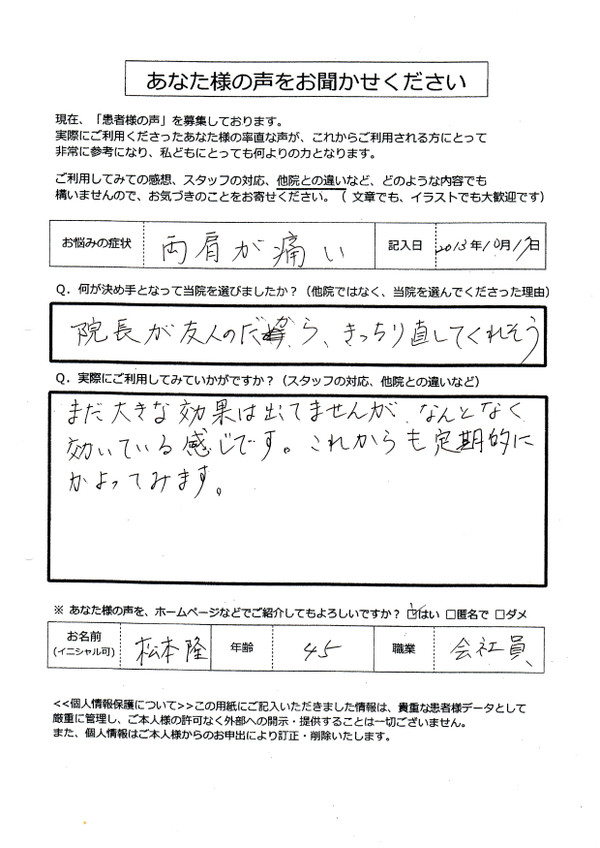 あなた様の声をお聞かせください
現在、「患者様の声」を募集しております。
実際にご利用くださったあなた様の率直な声が、これからご利用される方にとって
非常に参考になり、私どもにとっても何よりの力となります。
ご利用してみての感想、スタッフの対応、他院との違いなど、どのような内容でも
構いませんので、お気づきのことをお寄せください。（ 文章でも、イラストでも大歓迎です）
お悩みの症状 両肩が痛い 記入日 2013年10月17日
Q．何が決め手となって当院を選びましたか？（他院ではなく、当院を選んでくださった理由）
院長が友人のだから、きっちり直してくれそう
Q．実際にご利用してみていかがですか？（スタッフの対応、他院との違いなど）
まだ大きな効果は出てませんが、なんとなく
効いている感じです。これからも定期的に
かよってみます。
※ あなた様の声を、ホームページなどでご紹介してもよろしいですか？ ☑はい □匿名で □ダメ
お名前 松本隆 年齢 45 職業 会社員
(イニシャル可)
<<個人情報保護について>>この用紙にご記入いただきました情報は、貴重な患者様データとして
厳重に管理し、ご本人様の許可なく外部への開示・提供することは一切ございません。
また、個人情報はご本人様からのお申出により訂正・削除いたします。